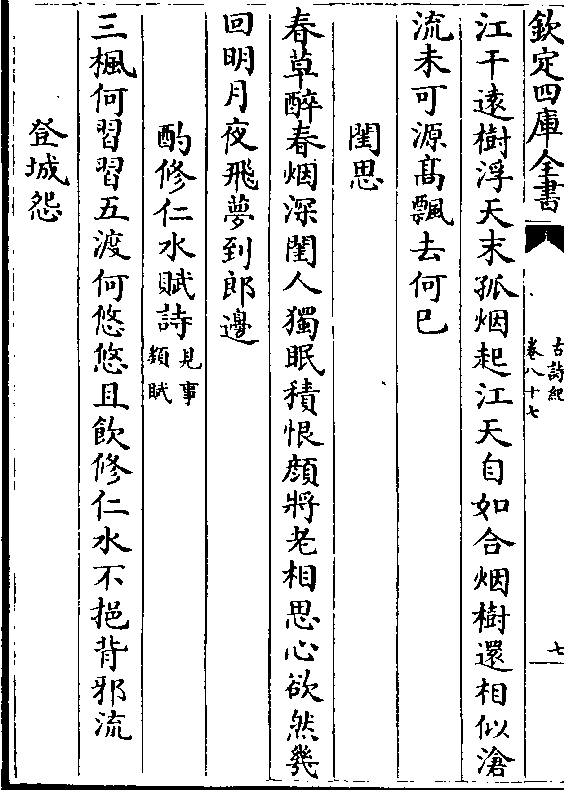 欽定四庫全書
古詩紀
卷八十七
七
江干遠樹浮天末孤烟起江天自如合烟樹還相似滄
流未可源髙飄去何已
閨思
春草醉春烟深閨人獨眠積恨顔將老相思心欲然幾
回明月夜飛夢到郎邊
酌修仁水賦詩見事
類賦
三楓何習習五渡何悠悠且飲修仁水不挹背邪流
登城怨